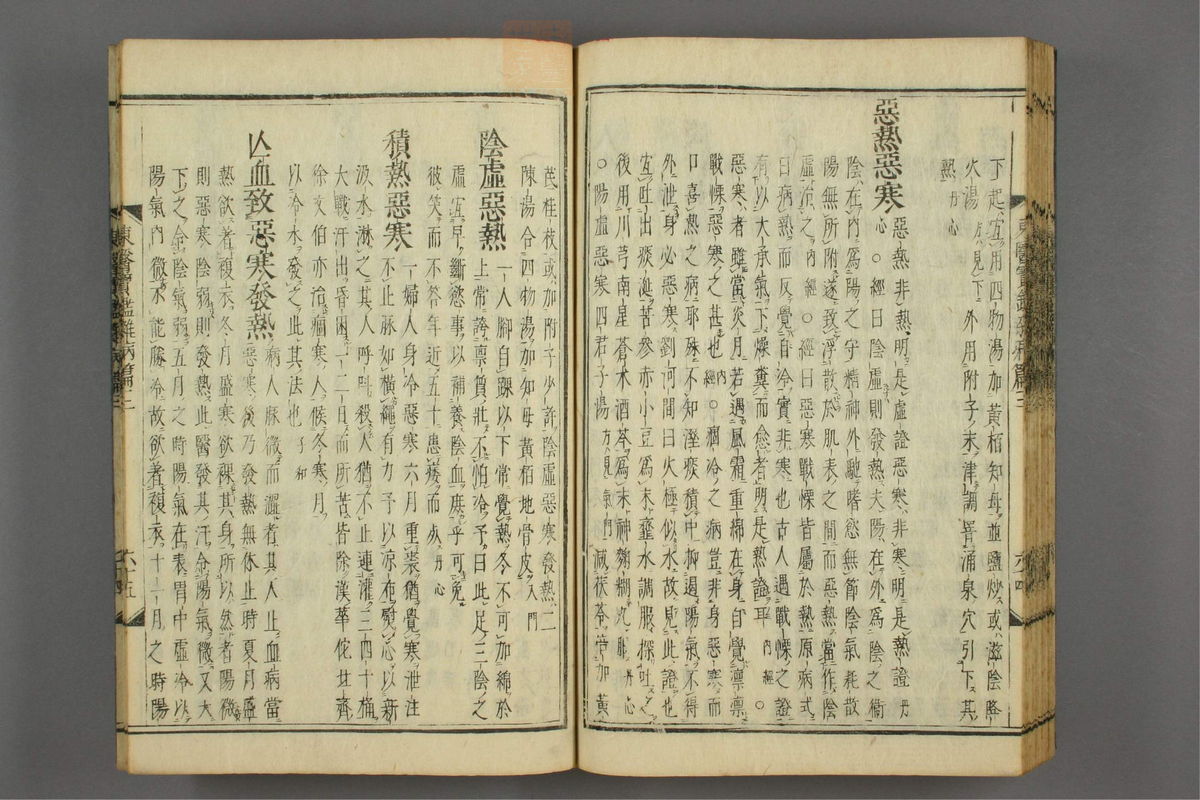 下起宜用四物湯加黃栢知母並鹽炒或滋陰降
火湯方見下外用附子末津調晋涌泉穴引下其
熱丹心
惡熱惡寒
惡熱非熱明是虛證惡寒非寒明是熱證丹
心○經曰陰虛則發熱夫陽在外爲陰之衛
陰在內爲陽之守精神外馳嗜慾無節陰氣耗散
陽無所附遂致浮散於肌表之間而惡熱當作陰
虛治之內經○經曰惡寒戰慄皆屬於熱原病式
曰病熱而反覺自冷實非寒也古人遇戰慄之證
有以大承氣下燥糞而愈者明是熱證耳內經○
惡寒者雖當炎月若遇風霜重綿在身自覺凛凛
戰慄惡寒之甚也內經○痼冷之病豈非身惡寒而
口喜熱之病耶殊不知溼痰積中抑遏陽氣不得
外泄身必惡寒劉河間曰火極似水故見此證也
宜吐出痰涎苦參赤小豆爲末虀水調服探吐之
後用川芎南星蒼朮酒芩爲末神麴糊丸服丹心
○陽虛惡寒四君子湯方見氣門減茯苓倍加黃
芪桂枝或加附子少許陰虛惡寒發熱二
陳湯合四物湯加知母黃栢地骨皮入門
陰虛惡熱
一人脚自踝以下常覺熱冬不可加綿於
上常誇禀質壯不怕冷予曰此足三陰之
虛宜早斷慾事以補養陰血庶乎可免
彼笑而不答年近五十患痿而死丹心
積熱惡寒
一婦人身冷惡寒六月重裘猶覺寒泄注
不止脉如橫繩有力予以凉布熨心以新
汲水淋之其人呼叫殺人猶不止連灌三四十桶
大戰汗出昏困一二日而所苦皆除漢華佗北齊
徐文伯亦治痼寒人候冬寒月
以冷水發之此其法也子和
亾血致惡寒發熱
病人脉微而澀者其人亾血病當
惡寒後乃發熱無休止時夏月盛
熱欲著複衣冬月盛寒欲裸其身所以然者陽微
則惡寒陰弱則發熱此醫發其汗令陽氣微又大
下之令陰氣弱五月之時陽氣在表胃中虛冷以
陽氣內微不能勝冷故欲著複衣十一月之時陽
東醫寶鑑雜病篇三
六十四
六十五